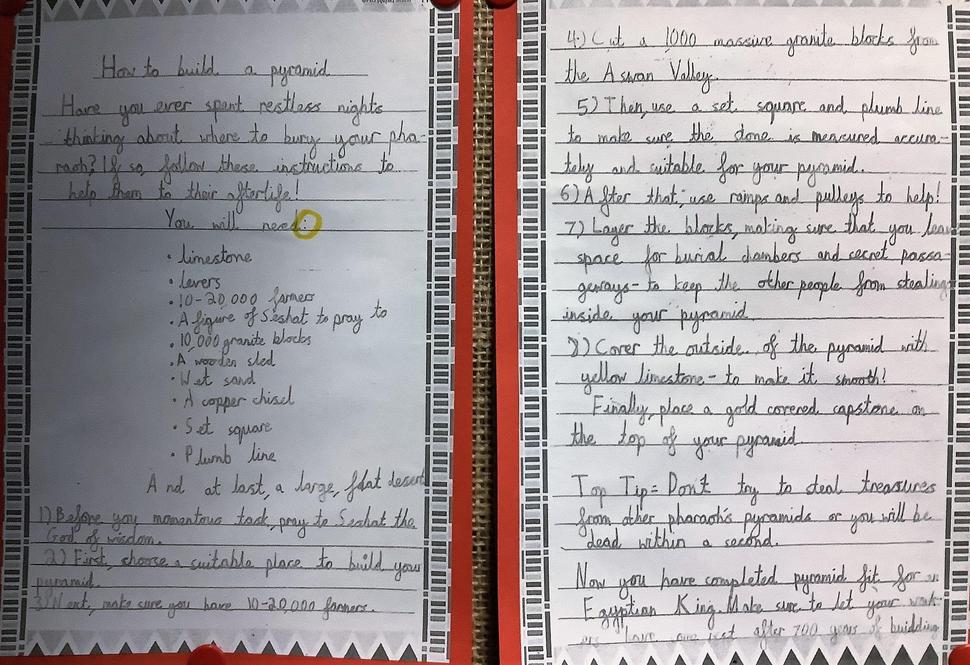 How to build a pyramid
Have you ever spent restless nights
thinking about where to bury your pha-
raoh? If so, follow these instructions to
help them to their afterlife!
You will need:
· limestone
· levers
· 10-20,000 farmers
· A figure of Seshat to pray to
· 10,000 granite blocks
· A wooden sled
· Wet sand
· A copper chisel
· Set square
· Plumb line
And at last, a large, flat desert
1) Before you momentous task, pray to Seshat the
God of wisdom.
2) First, choose a suitable place to build your
pyramid.
3) Next, make sure you have 10-20,000 farmers.
4) Cut a 1000 massive granite blocks from
the Aswan Valley.
5) Then, use a set square and plumb line
to make sure the stone is mencured accura-
tely and suitable for your pyramid.
6) After that, use ramps and pulleys to help!
7) Layer the blocks, making sure that you leav
space for burial chambers and secret passa-
geways- to keep the other people from stealing
inside your pyramid.
8) Cover the outside of the pyramid with
yellow limestone- to make it smooth!
Finally, place a gold covered capstone on
the top of your pyramid.
Top Tip= Don't try to steal treasures
from other pharaoh's pyramids or you will be
dead within a second.
Now you have completed pyramid fit for an
Egyptian King. Make sure to let your work-
ers have rest after 200 years of buidding